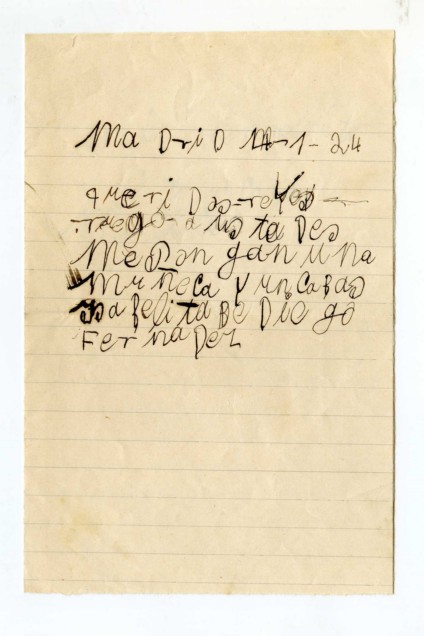 MaDriD 1-1-24
queriDos-reyes
ruego-a ustaDes
MePongan una
Muñeca y un CaBas
isaBelita De Diego
FernaDez